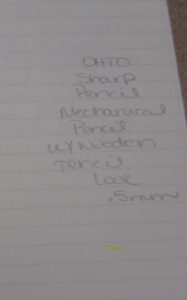 OHTO
Sharp
Pencil
Mechanical
Pencil
w/ Wooden
Pencil
Look
.5mm